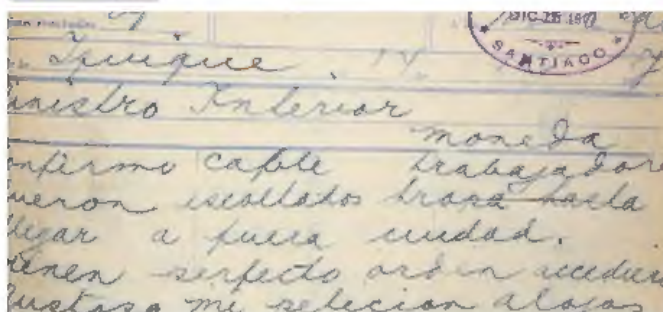 DIC. 15 1907
SANTIAGO
Iquique 14
inistro Interior
moneda
onfirmo cable trabajador
ueron escoltados tropa hasta
llegar a fuera ciudad.
ienen perfecto orden accedien
gustoso mi peticion alojar